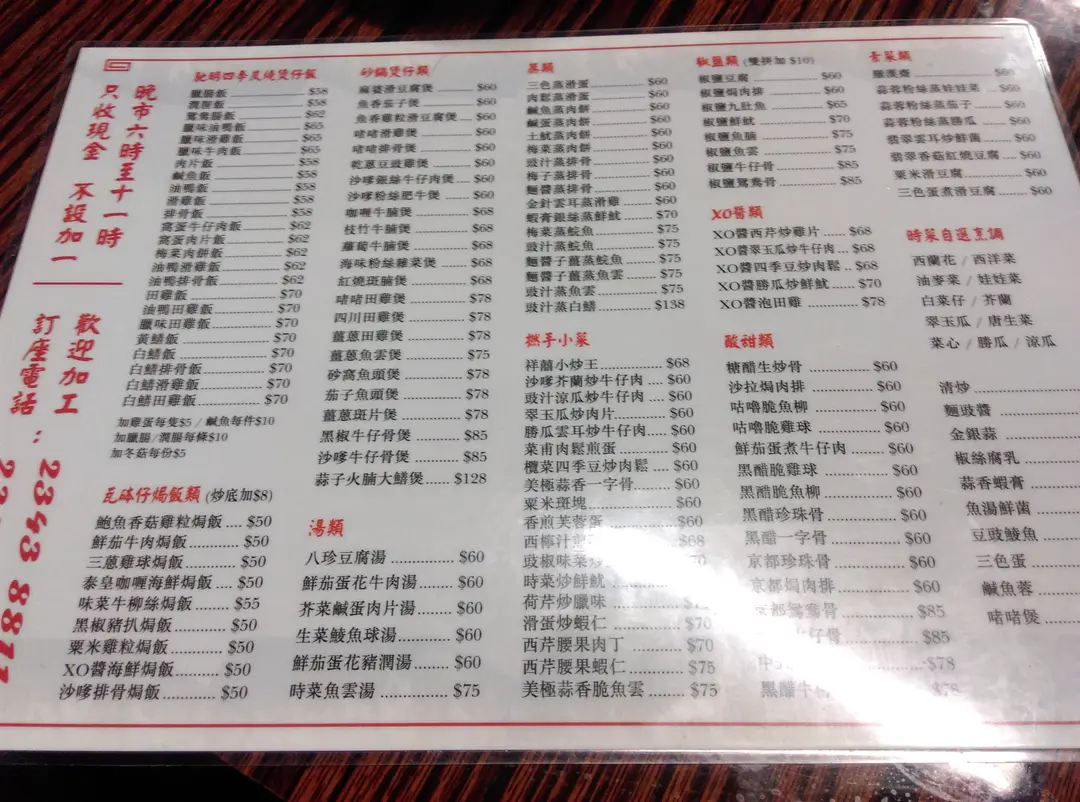 晚市六時至十一時
只收現金 不設加一
歡迎加工
訂座電話：2343 8811
馳明四季炭燒煲仔飯
臘腸飯 $58
潤腸飯 $58
鴛鴦腸飯 $62
臘味油鴨飯 $65
臘味滑雞飯 $65
臘味牛肉飯 $65
肉片飯 $58
鹹魚飯 $58
油鴨飯 $58
滑雞飯 $58
排骨飯 $58
窩蛋牛仔肉飯 $62
窩蛋肉片飯 $62
梅菜肉餅飯 $62
油鴨滑雞飯 $62
油鴨排骨飯 $62
田雞飯 $70
油鴨田雞飯 $70
臘味田雞飯 $70
黃鱔飯 $70
白鱔飯 $70
白鱔排骨飯 $70
白鱔滑雞飯 $70
白鱔田雞飯 $70
加雞蛋每隻$5 / 鹹魚每件$10
加臘腸/潤腸每條$10
加冬菇每份$5
瓦砵仔焗飯類 (炒底加$8)
鮑魚香菇雞粒焗飯 $50
鮮茄牛肉焗飯 $50
三蔥雞球焗飯 $50
泰皇咖喱海鮮焗飯 $50
味菜牛柳絲焗飯 $55
黑椒豬扒焗飯 $50
粟米雞粒焗飯 $50
XO醬海鮮焗飯 $50
沙嗲排骨焗飯 $50
砂鍋煲仔類
麻婆滑豆腐煲 $60
魚香茄子煲 $60
魚香雞粒滑豆腐煲 $60
啫啫滑雞煲 $60
啫啫排骨煲 $60
乾蔥豆豉雞煲 $60
沙嗲銀絲牛仔肉煲 $60
沙嗲粉絲肥牛煲 $60
咖喱牛腩煲 $68
枝竹牛腩煲 $68
蘿蔔牛腩煲 $68
海味粉絲雜菜煲 $68
紅燒斑腩煲 $68
啫啫田雞煲 $78
四川田雞煲 $78
薑蔥田雞煲 $78
薑蔥魚雲煲 $75
砂窩魚頭煲 $78
茄子魚頭煲 $78
薑蔥斑片煲 $78
黑椒牛仔骨煲 $85
沙嗲牛仔骨煲 $85
蒜子火腩大鱔煲 $128
湯類
八珍豆腐湯 $60
鮮茄蛋花牛肉湯 $60
芥菜鹹蛋肉片湯 $60
生菜鯪魚球湯 $60
鮮茄蛋花豬潤湯 $60
時菜魚雲湯 $75
蒸類
三色蒸滑蛋 $60
肉鬆蒸滑蛋 $60
鹹魚蒸肉餅 $60
鹹蛋蒸肉餅 $60
土魷蒸肉餅 $60
梅菜蒸肉餅 $60
豉汁蒸排骨 $60
梅子蒸排骨 $60
麵醬蒸排骨 $60
金針雲耳蒸滑雞 $60
蝦膏銀絲蒸鮮魷 $70
梅菜蒸鯇魚 $75
豉汁蒸鯇魚 $75
麵醬子薑蒸鯇魚 $75
麵醬子薑蒸魚雲 $75
豉汁蒸魚雲 $75
豉汁蒸白鱔 $138
撚手小菜
祥囍小炒王 $68
沙嗲芥蘭炒牛仔肉 $60
豉汁涼瓜炒牛仔肉 $60
翠玉瓜炒肉片 $60
勝瓜雲耳炒牛仔肉 $60
菜甫肉鬆煎蛋 $60
欖菜四季豆炒肉鬆 $60
美極蒜香一字骨 $60
粟米斑塊 $60
香煎芙蓉蛋 $60
西檸汁煎 $68
豉椒味菜炒
時菜炒鮮魷
荷芹炒臘味
滑蛋炒蝦仁 $70
西芹腰果肉丁 $70
西芹腰果蝦仁 $75
美極蒜香脆魚雲 $75
椒鹽類 (雙拼加 $10)
椒鹽豆腐 $60
椒鹽焗肉排 $60
椒鹽九肚魚 $65
椒鹽鮮魷 $70
椒鹽魚腩 $75
椒鹽魚雲 $75
椒鹽牛仔骨 $85
椒鹽鴛鴦骨 $85
XO醬類
XO醬西芹炒雞片 $68
XO醬翠玉瓜炒牛仔肉 $68
XO醬四季豆炒肉鬆 $68
XO醬勝瓜炒鮮魷 $70
XO醬泡田雞 $78
酸甜類
糖醋生炒骨 $60
沙拉焗肉排 $60
咕嚕脆魚柳 $60
咕嚕脆雞球 $60
鮮茄蛋煮牛仔肉 $60
黑醋脆雞球 $60
黑醋脆魚柳 $60
黑醋珍珠骨 $60
黑醋一字骨 $60
京都珍珠骨 $60
京都焗肉排 $60
鴛鴦骨 $85
牛仔骨 $85
$78
黑醋牛 $78
素菜類
羅漢齋 $60
蒜蓉粉絲蒸娃娃菜 $60
蒜蓉粉絲蒸茄子 $60
蒜蓉粉絲蒸勝瓜 $60
翡翠雲耳炒鮮菌 $60
翡翠香菇紅燒豆腐 $60
粟米滑豆腐 $60
三色蛋煮滑豆腐 $60
時菜自選烹調
西蘭花 / 西洋菜
油麥菜 / 娃娃菜
白菜仔 / 芥蘭
翠玉瓜 / 唐生菜
菜心 / 勝瓜 / 涼瓜
清炒
麵豉醬
金銀蒜
椒絲腐乳
蒜香蝦膏
魚湯鮮菌
豆豉鯪魚
三色蛋
鹹魚蓉
啫啫煲